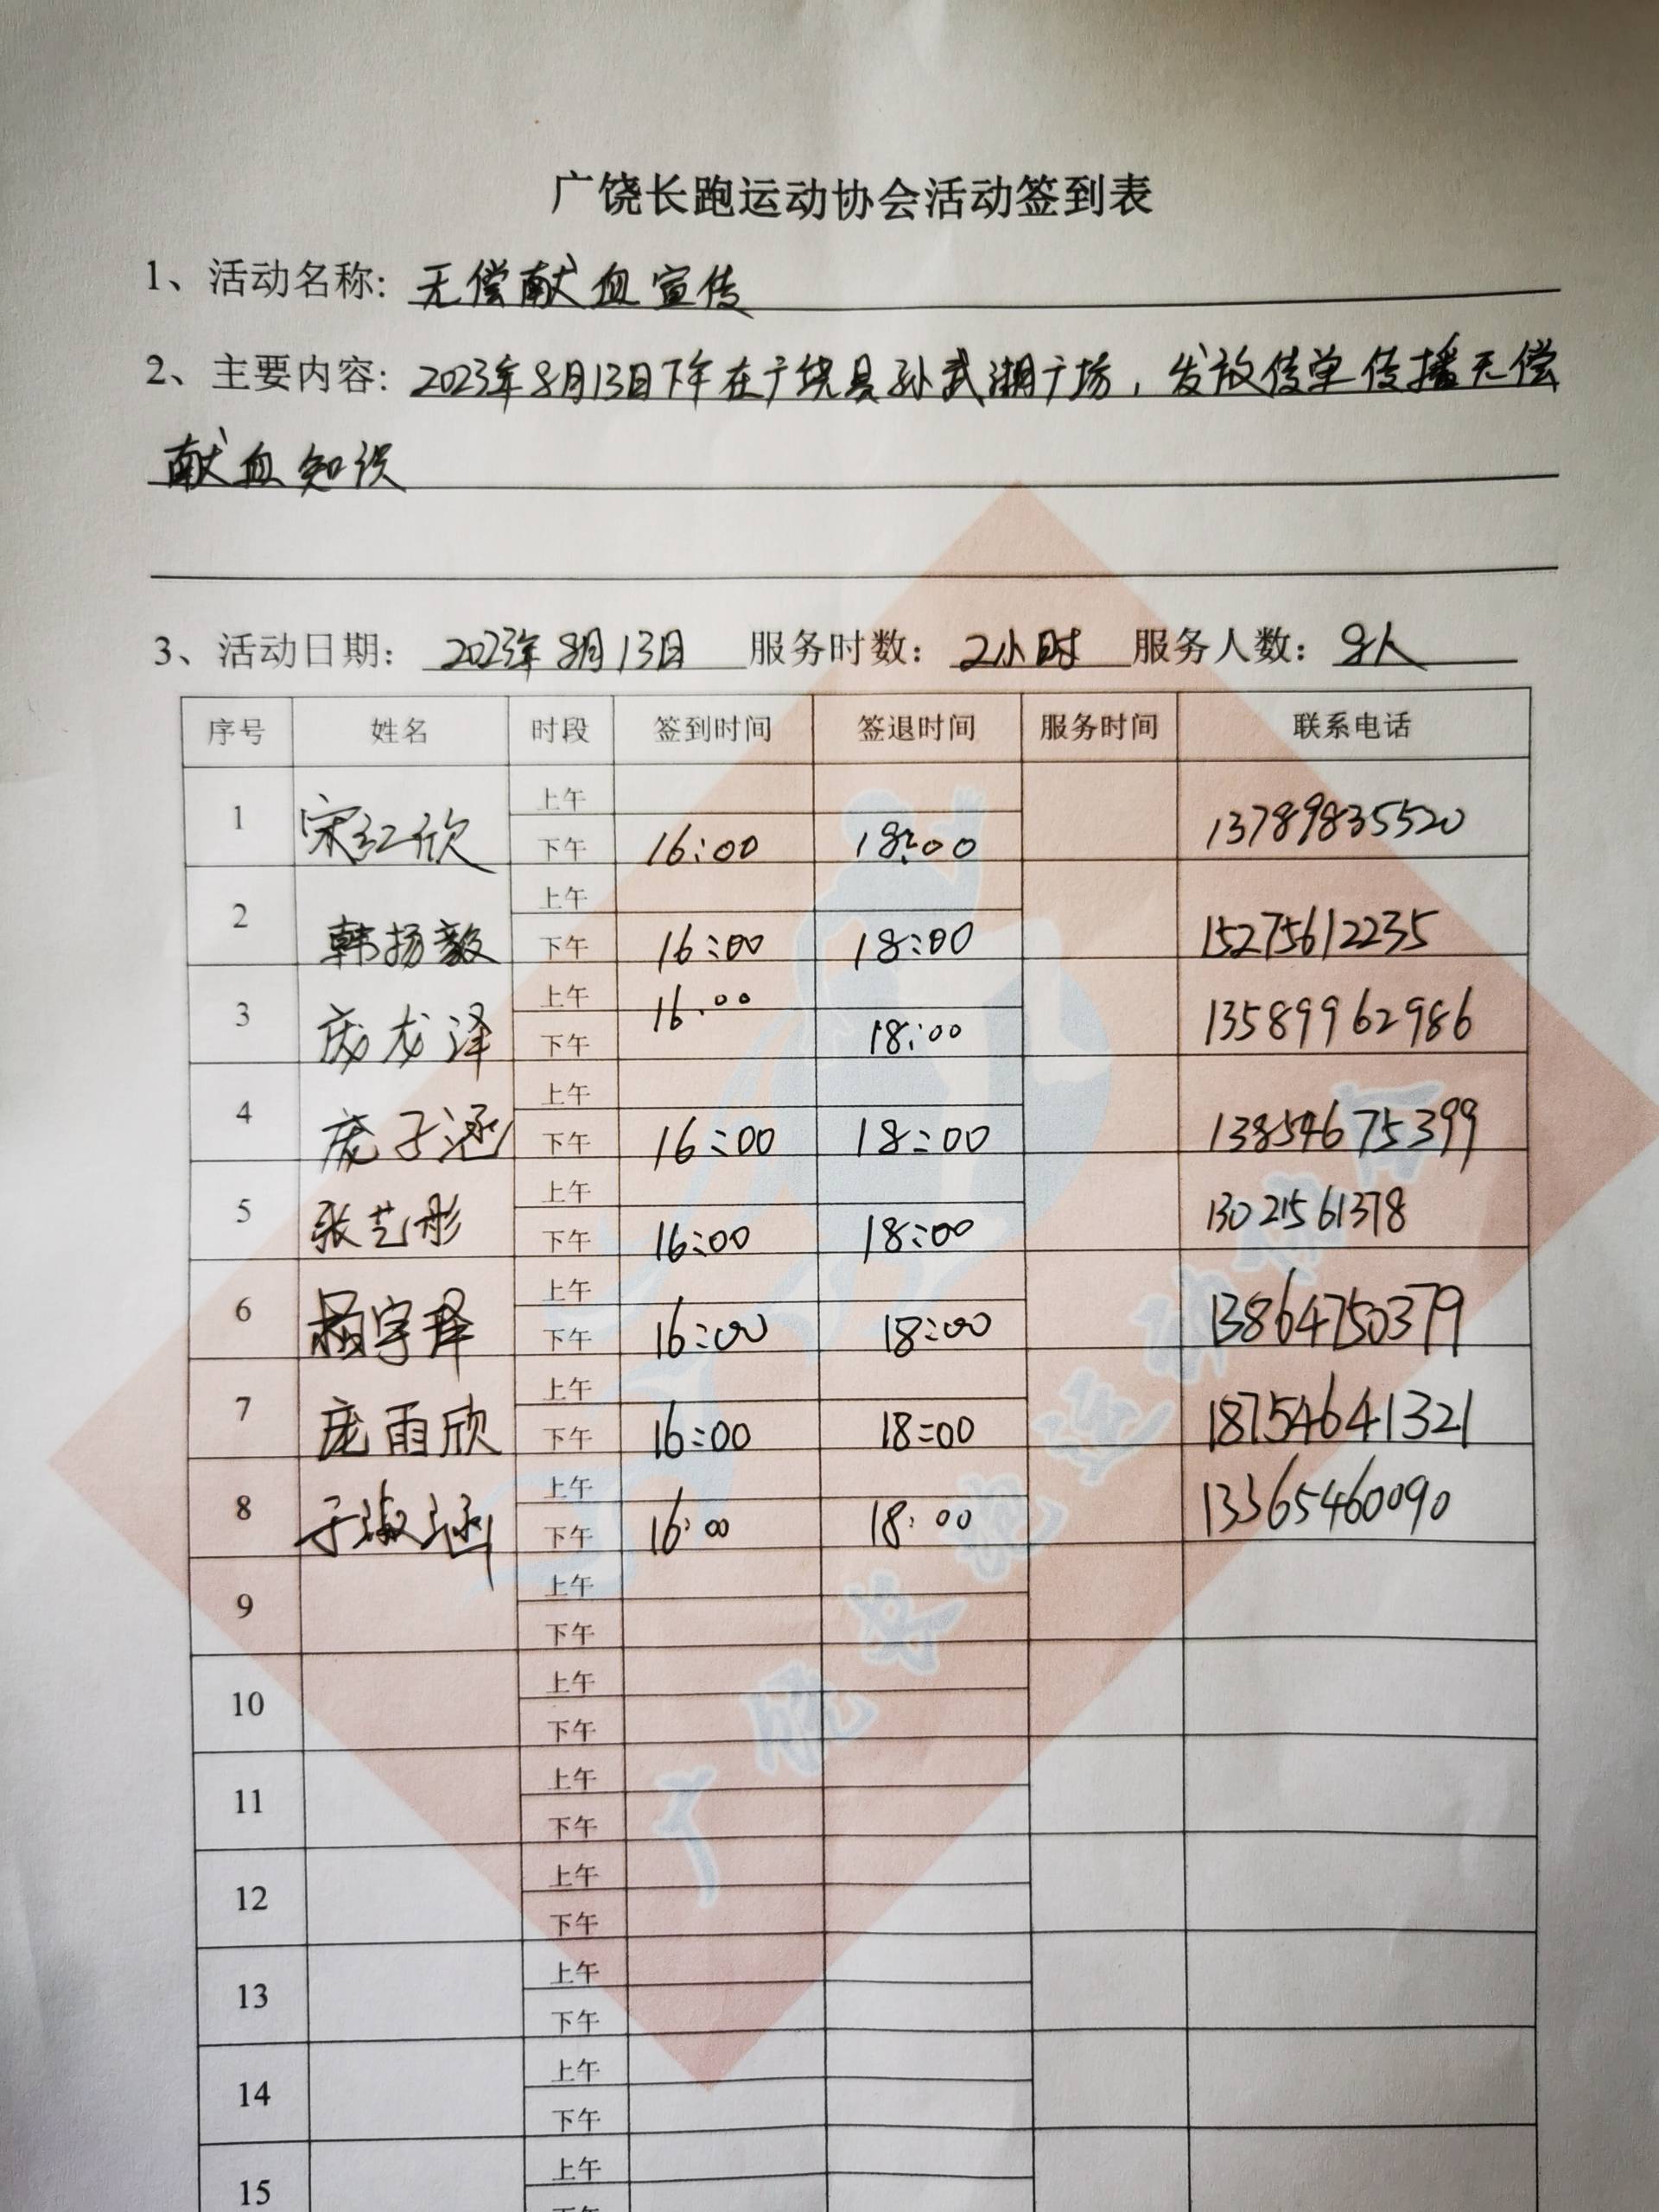 广饶长跑运动协会活动签到表
1、活动名称: 无偿献血宣传
2、主要内容: 2023年8月13日下午在广饶县孙武湖广场，发放传单传播无偿
献血知识
3、活动日期: 2023年8月13日 服务时数: 2小时 服务人数: 8人
序号 姓名 时段 签到时间 签退时间 服务时间 联系电话
上午
1 宋红欣 13789835520
下午 16:00 18:00
上午
2 韩扬毅 15275612235
下午 16:00 18:00
上午 16:00
3 庞龙泽 13589962986
下午 18:00
上午
4 庞子涵 13854675399
下午 16:00 18:00
上午
5 张艺彤 13021561378
下午 16:00 18:00
上午
6 宇泽 13864750379
下午 16:00 18:00
上午
7 庞雨欣 18754641321
下午 16:00 18:00
上午
8 于淑涵 13365460090
下午 16:00 18:00
上午
9
下午
上午
10
下午
上午
11
下午
上午
12
下午
上午
13
下午
上午
14
下午
上午
15
下午
广饶长跑运动协会